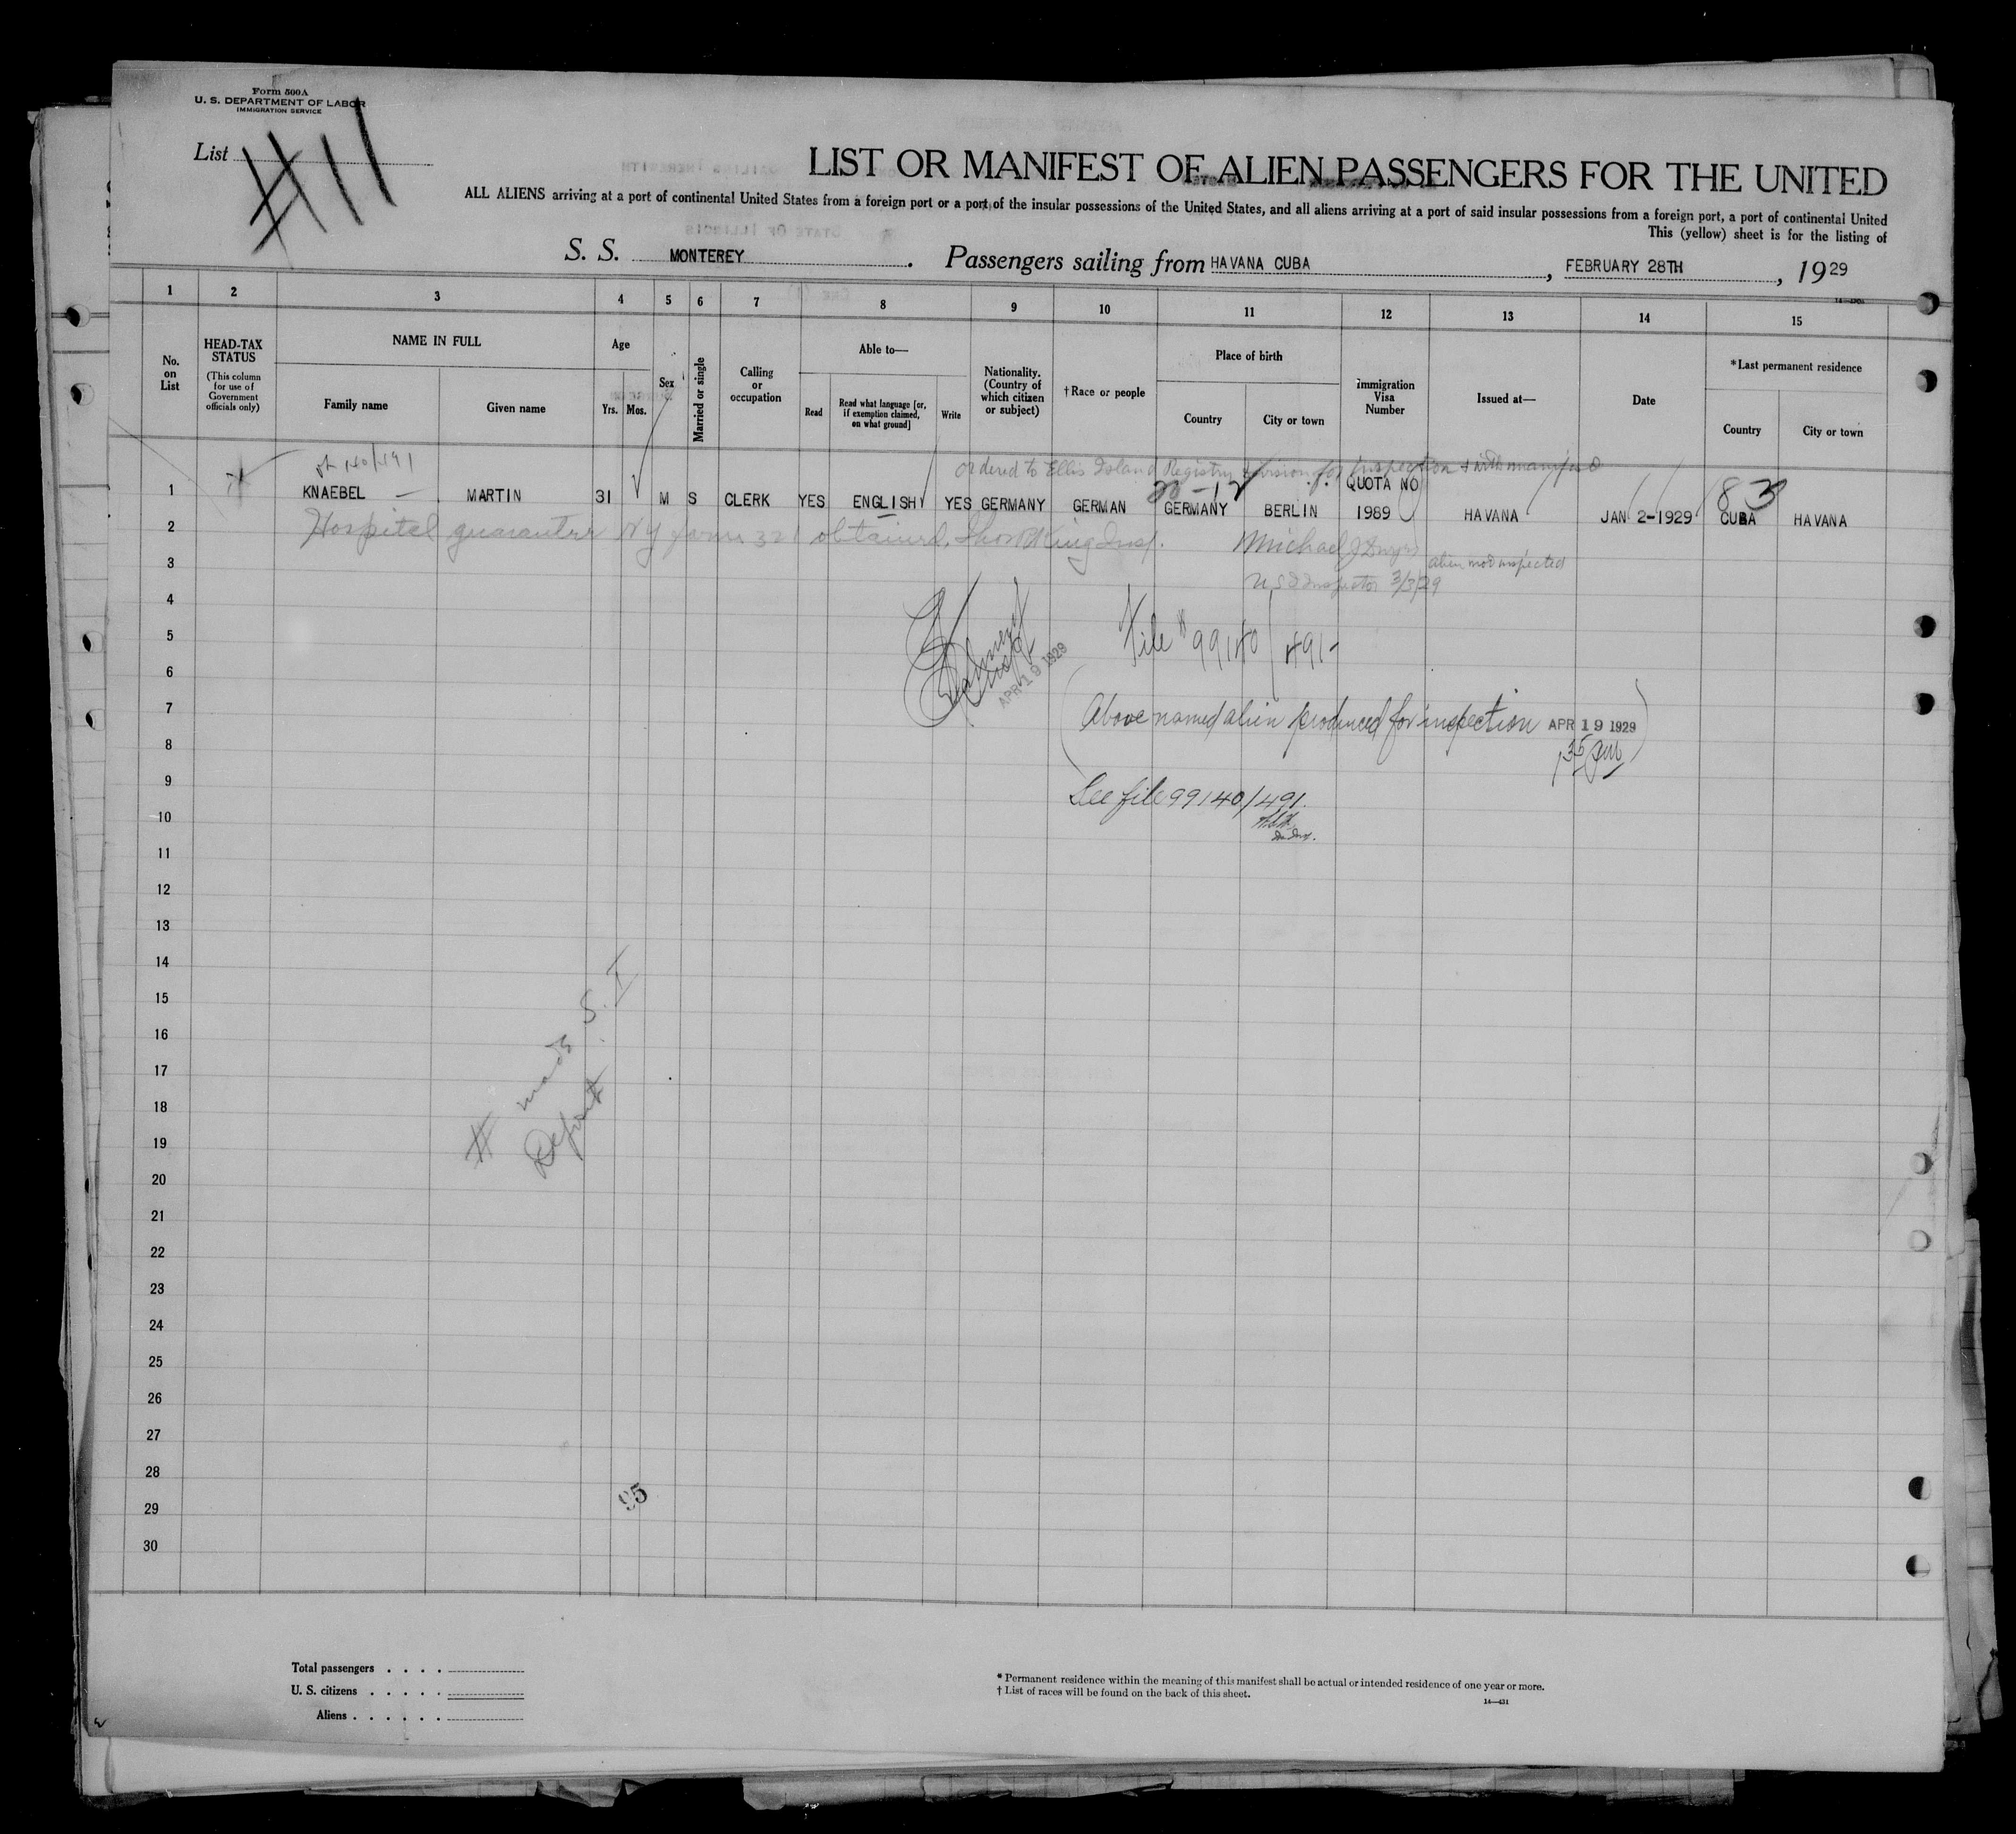 Form 500A
U. S. DEPARTMENT OF LABOR
IMMIGRATION SERVICE
List #11
LIST OR MANIFEST OF ALIEN PASSENGERS FOR THE UNITED
ALL ALIENS arriving at a port of continental United States from a foreign port or a port of the insular possessions of the United States, and all aliens arriving at a port of said insular possessions from a foreign port, a port of continental United
This (yellow) sheet is for the listing of
STATE OF ILLINOIS
S. S. MONTEREY. Passengers sailing from HAVANA CUBA, FEBRUARY 28TH, 1929
1 2 3 4 5 6 7 8 9 10 11 12 13 14 15
No. on List
HEAD-TAX STATUS
(This column for use of Government officials only)
NAME IN FULL
Family name
Given name
Age
Yrs. Mos.
Sex
Married or single
Calling or occupation
Able to—
Read
Read what language [or, if exemption claimed, on what ground]
Write
Nationality. (Country of which citizen or subject)
†Race or people
Place of birth
Country
City or town
Immigration Visa Number
Issued at—
Date
*Last permanent residence
Country
City or town
140/491
Ordered to Ellis Island Registry Division for inspection
QUOTA NO
83
1 KNAEBEL — MARTIN 31 M S CLERK YES ENGLISH YES GERMANY GERMAN GERMANY BERLIN 1989 HAVANA JAN 2-1929 CUBA HAVANA
2 Hospital guarantee NY form 321 obtained.
Michael J Dwyer
3 alien not inspected
US Inspector 3/3/29
4
5 File # 99140/491-
6 APR 19 1929
7 (Above named alien produced for inspection APR 19 1929
8 1 35 pm)
9 See file 99140/491.
10
11
12
13
14
15
16
17
18
19
20
21
22
23
24
25
26
27
28
29
30
# made S. I
Deport
95
Total passengers . . . .
U. S. citizens . . . . .
Aliens . . . . . .
* Permanent residence within the meaning of this manifest shall be actual or intended residence of one year or more.
† List of races will be found on the back of this sheet.
14—431